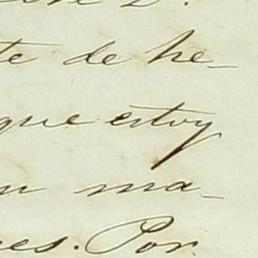 te de he-
que estoy
n ma-
es. Por